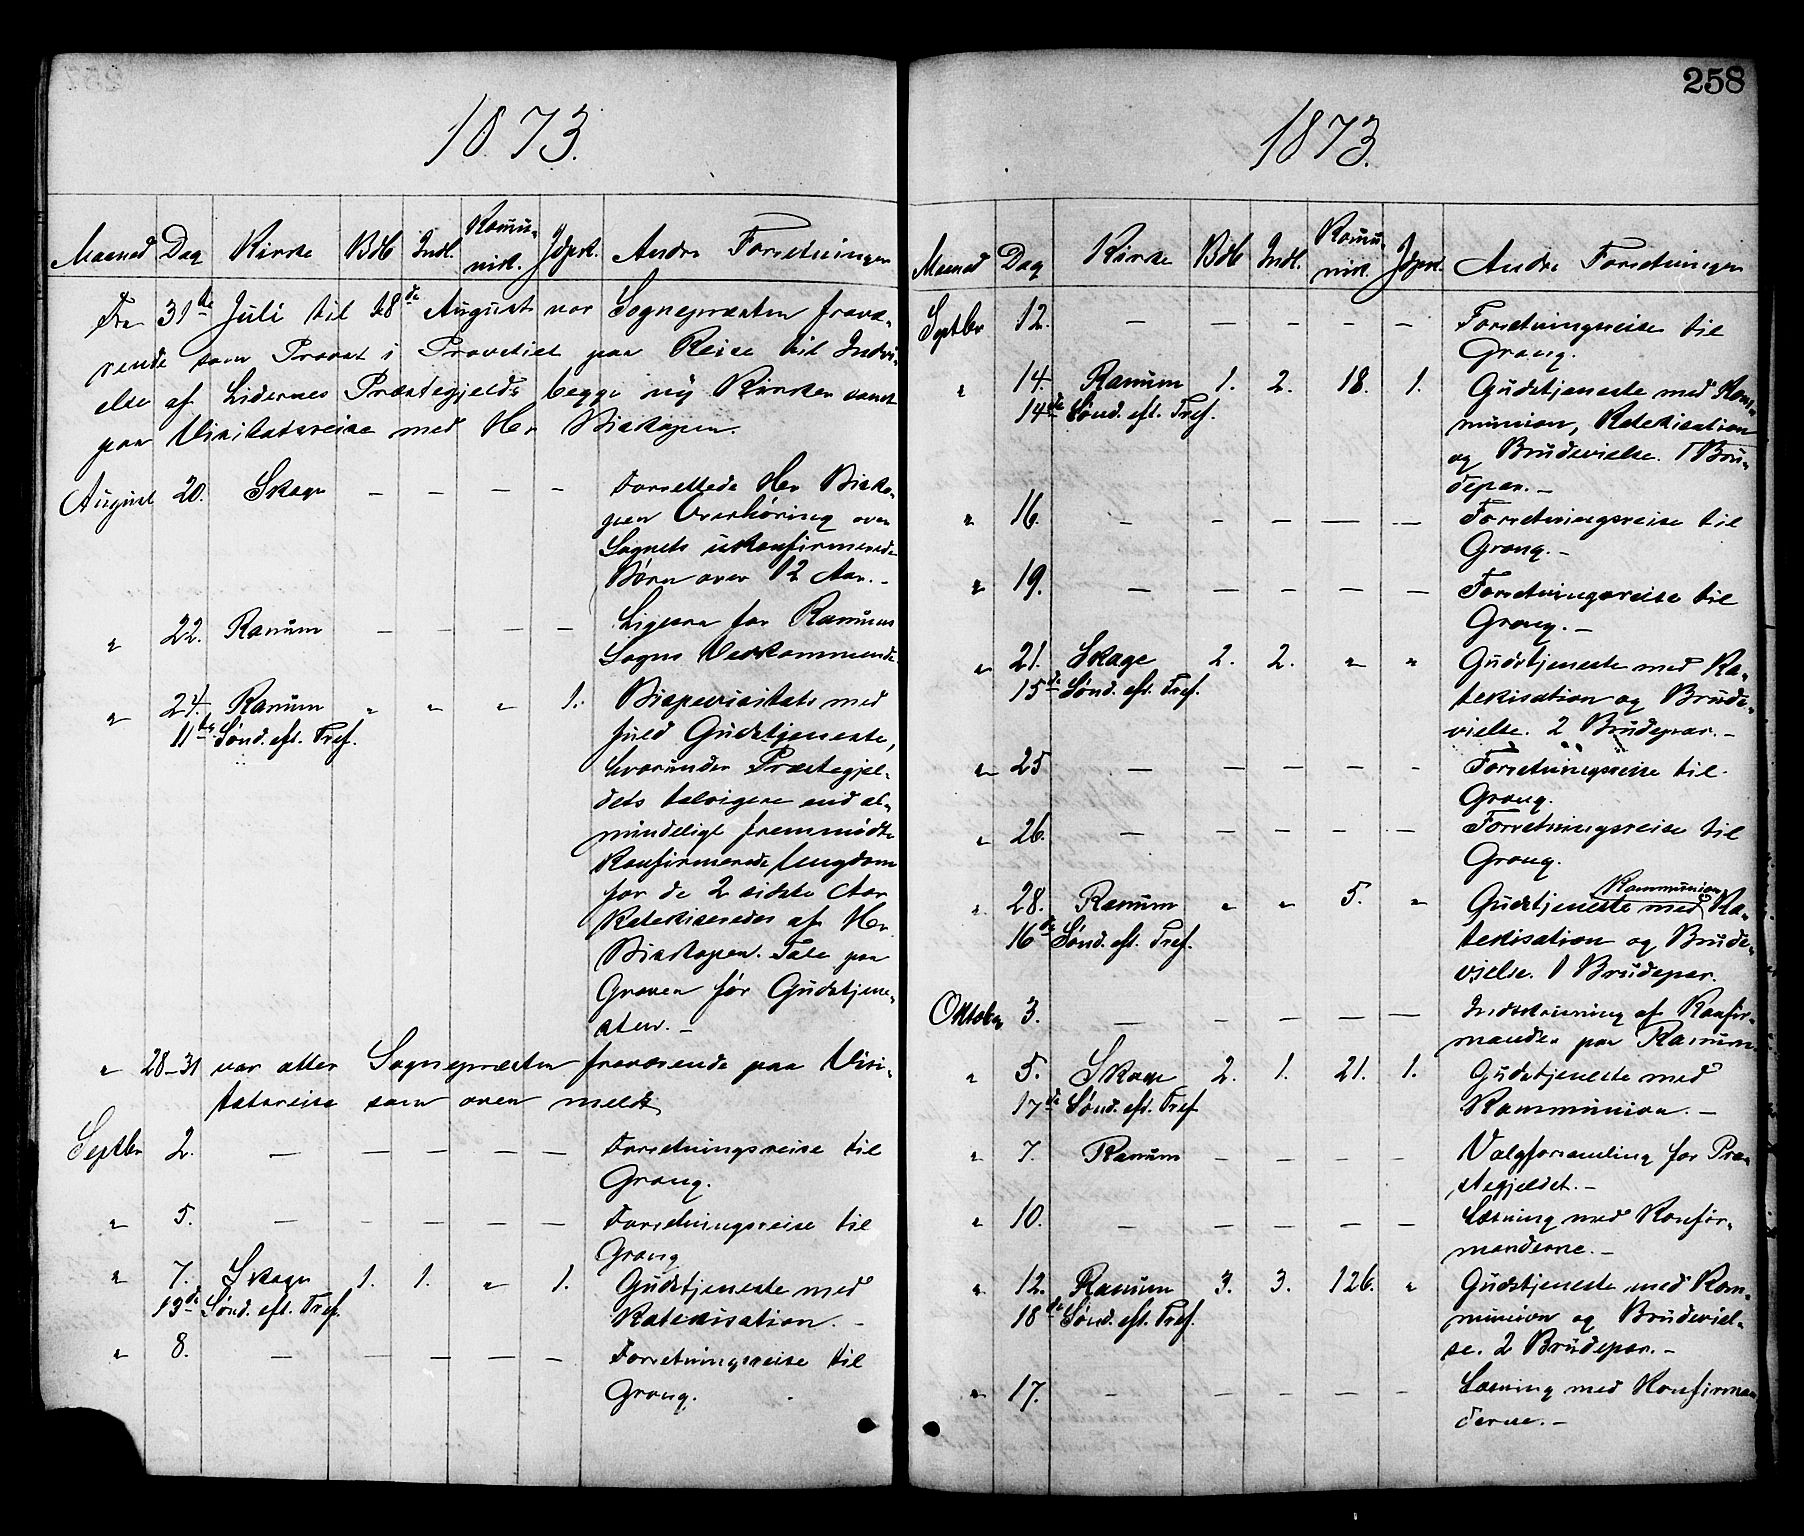 1873.
Maaned Dag Kirke Bdb Indl. Komu-nik. Jdpsk. Andre Forretninger
Fra 31te Juli til 18de August var Sognepræsten fravæ-
rende som Provst i Provstiet paa Reise til Indvi-
else af Lidernes Præstegjelds begge ny Kirker samt
paa Visitatsreise med Hr Biskopen.
August 20. Skage — — — — Forrettede Hr Bisko-
pen Overhøring over
Sognets ukonfirmerede
Børn over 12 Aar. —
" 22. Ranum — — — — Ligesaa for Ranums
Sogns Vedkommende.
" 24. Ranum " " " 1. Bispevisitats med
11te Sønd. eft. Tref. fuld Gudstjeneste,
hvorunder Præstegjel-
dets talrigere end al-
mindeligt fremmødte
Konfirmerede Ungdom
for de 2 sidste Aar
katekiseredes af Hr.
Biskopen. Tale paa
Graven før Gudstjene-
sten. —
" 28-31 var atter Sognepræsten fraværende paa Visi-
tatsreise som oven meldt
Septbr 2. — — — — — Forretningsreise til
Grong.
" 5. — — — — — Forretningsreise til
Grong
" 7. Skage 1. 1. " 1. Gudstjeneste med
13de Sønd. eft. Tref. Katekisation. —
" 8. — — — — — Forretningsreise til
Grong.
258
1873.
Maaned Dag Kirke Bdb Indl. Komu-nik. Jdpsk. Andre Forretninger
Septbr 12. — — — — — Forretningsreise til
Grong.
" 14. Ranum 1. 2. 18. 1. Gudstjeneste med Kom-
14de Sønd. eft. Tref. munion, Katekisation
og Brudevielse. 1 Bru-
depar. —
" 16. — — — — — Forretningsreise til
Grong. —
" 19. — — — — — Forretningsreise til
Grong. —
" 21. Skage 2. 2. " " Gudstjeneste med Ka-
15de Sønd. eft. Tref. tekisation og Brude-
vielse. 2 Brudepar. —
" 25 — — — — — Forretningsreise til
Grong.
" 26. — — — — — Forretningsreise til
Grong.
" 28. Ranum " " 5. " Gudstjeneste med Kommunion Ka-
16de Sønd. eft. Tref. tekisation og Brude-
vielse. 1 Brudepar.
Oktober 3. — — — — — Indskrivning af Konfir-
mander paa Ranum.
" 5. Skage 2. 1. 21. 1. Gudstjeneste med
17de Sønd. eft. Tref Kommunion. —
" 7. Ranum — — — — Valgforsamling for Præ-
stegjeldet. —
" 10. — — — — — Læsning med Konfir-
manderne. —
" 12. Ranum 3. 3. 126. " Gudstjeneste med Kom-
18de Sønd. eft. Tref. munion og Brudeviel-
se. 2 Brudepar. —
" 17. — — — — — Læsning med Konfirman-
derne. —